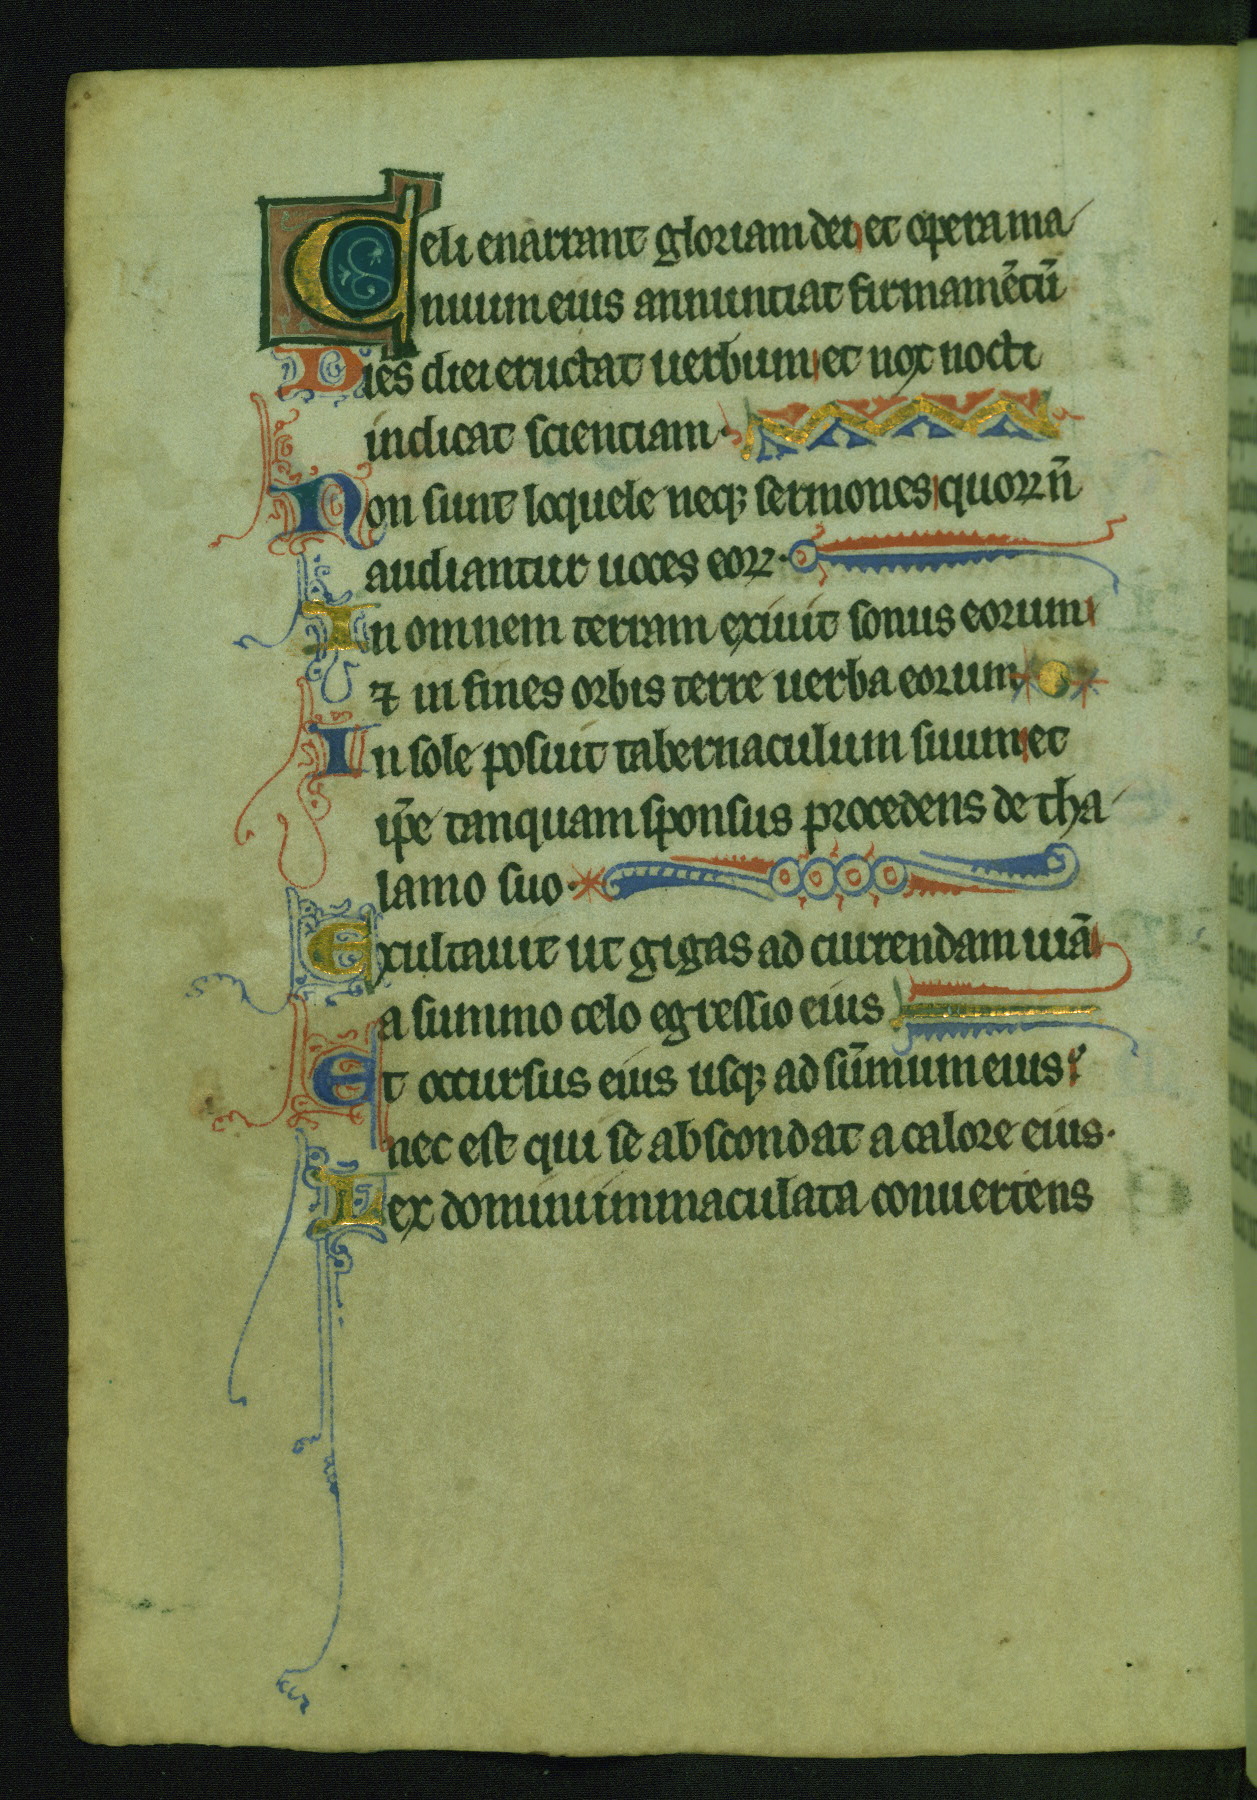 Celi enarrant gloriam dei et opera ma
nuum eius annuntiat firmamẽtũ
Dies diei eructat uerbum et nox nocti
indicat scientiam·
Non sunt loquele neqꝫ sermones quoꝝ ñ
audiantur uoces eoꝝ·
In omnem terram exiuit sonus eorum
⁊ in fines orbis terre uerba eorum
In sole posuit tabernaculum suum et
ip̃e tanquam sponsus procedens de tha
lamo suo·
Exultauit ut gigas ad currendam uiã
a summo celo egressio eius
Et occursus eius usqꝫ ad sũmum eius
nec est qui se abscondat a calore eius·
Lex domini inmaculata conuertens